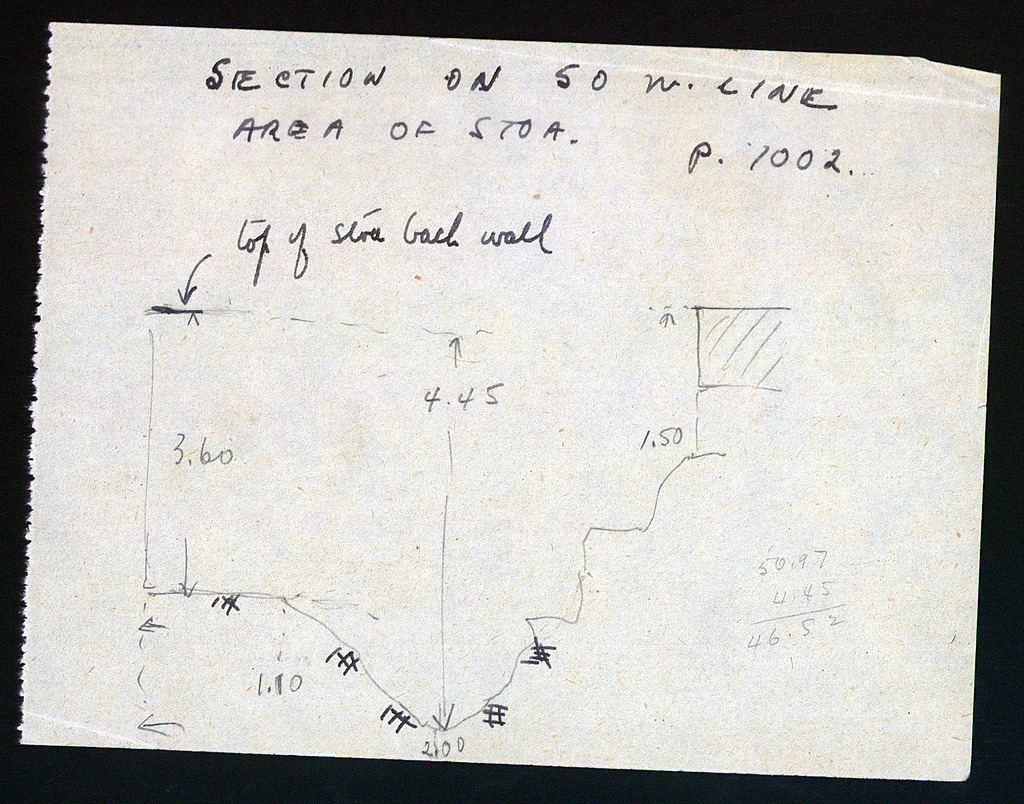 SECTION ON 50 W. LINE
AREA OF STOA.
P. 1002.
top of stoa back wall
4.45
3.60
1.50
50.97
4.45
46.52
1.10
2.00